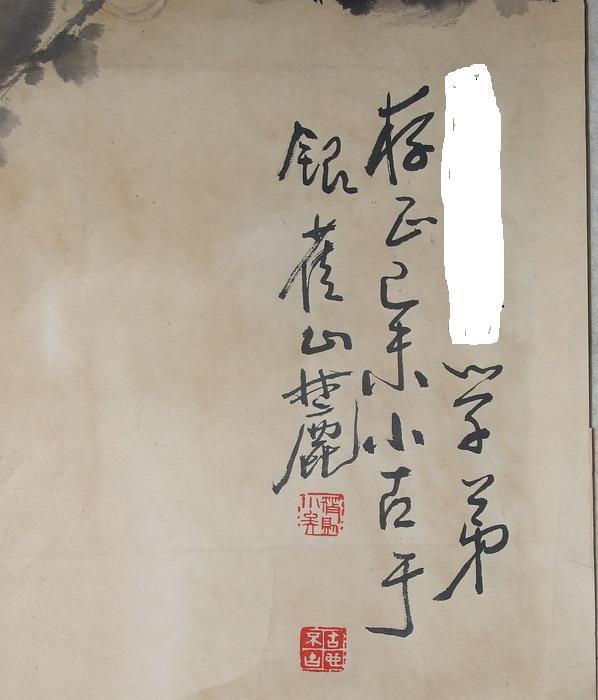 学弟
存正己未小古于
銀雀山麓